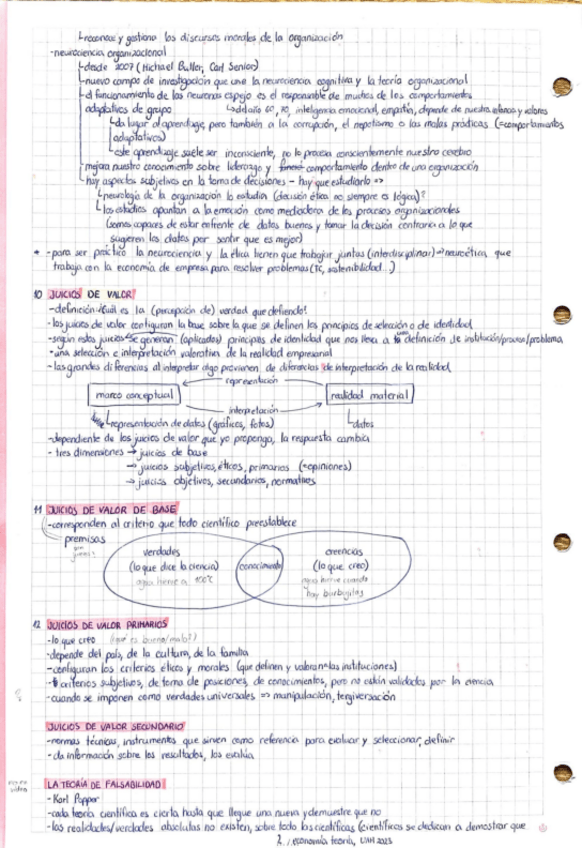 ↳reconoce y gestiona los discursos morales de la organización
-neurociencia organizacional
↳desde 2007 (Michael Butler, Carl Senior)
↳nuevo campo de investigación que une la neurociencia cognitiva y la teoría organizacional
↳el funcionamiento de las neuronas espejo es el responsable de muchos de los comportamientos
adaptativos de grupo ↳del año 60, 70, inteligencia emocional, empatía, depende de nuestra crianza y valores
↳da lugar al aprendizaje, pero también a la corrupción, el nepotismo o las malas prácticas (=comportamientos
adaptativos)
↳este aprendizaje suele ser inconsciente, no lo procesa conscientemente nuestro cerebro
↳mejora nuestro conocimiento sobre liderazgo y comportamiento dentro de una organización
↳hay aspectos subjetivos en la toma de decisiones - hay que estudiarlo =>
↳neurología de la organización lo estudia (decisión ética no siempre es lógica)?
↳los estudios apuntan a la emoción como mediadora de los procesos organizacionales
(somos capaces de estar enfrente de datos buenos y tomar la decisión contraria a lo que
sugieren los datos por sentir que es mejor)
* -para ser práctico la neurociencia y la ética tienen que trabajar juntas (interdisciplinar) → neuroética, que
trabaja con la economía de empresa para resolver problemas (TC, sostenibilidad...)
10 JUICIOS DE VALOR
-definición: ¿Cuál es la (percepción de) verdad que defiendo?
-los juicios de valor configuran la base sobre la que se definen los principios de selección o de identidad
-según estos juicios se generan (aplicados) principios de identidad que nos lleva a una definición de institución/proceso/problema
-una selección e interpretación valorativa de la realidad empresarial
-las grandes diferencias al interpretar algo provienen de diferencias de interpretación de la realidad
representación
marco conceptual
realidad material
interpretación
↳representación de datos (gráficos, fotos)
↳datos
-dependiente de los juicios de valor que yo propongo, la respuesta cambia
- tres dimensiones → juicios de base
→ juicios subjetivos, éticos, primarios (=opiniones)
→ juicios objetivos, secundarios, normativos
11 JUICIOS DE VALOR DE BASE
-corresponden al criterio que todo científico preestablece
premisas
verdades
(lo que dice la ciencia)
agua hierve a 100°C
conocimiento
creencias
(lo que creo)
agua hierve cuando
hay burbujitas
12 JUICIOS DE VALOR PRIMARIOS
-lo que creo (¿qué es bueno/malo?)
-depende del país, de la cultura, de la familia
-configuran los criterios éticos y morales (que definen y valoran a las instituciones)
-criterios subjetivos, de toma de posiciones, de conocimientos, pero no están validados por la ciencia
-cuando se imponen como verdades universales => manipulación, tergiversación
JUICIOS DE VALOR SECUNDARIO
-normas técnicas, instrumentos que sirven como referencia para evaluar y seleccionar, definir
-da información sobre los resultados, los evalúa
LA TEORÍA DE FALSABILIDAD
- Karl Popper
-cada teoría científica es cierta hasta que llegue una nueva y demuestre que no
-las realidades/verdades absolutas no existen, sobre todo las científicas (científicos se dedican a demostrar que
2. / economía teoría, UAH 2023